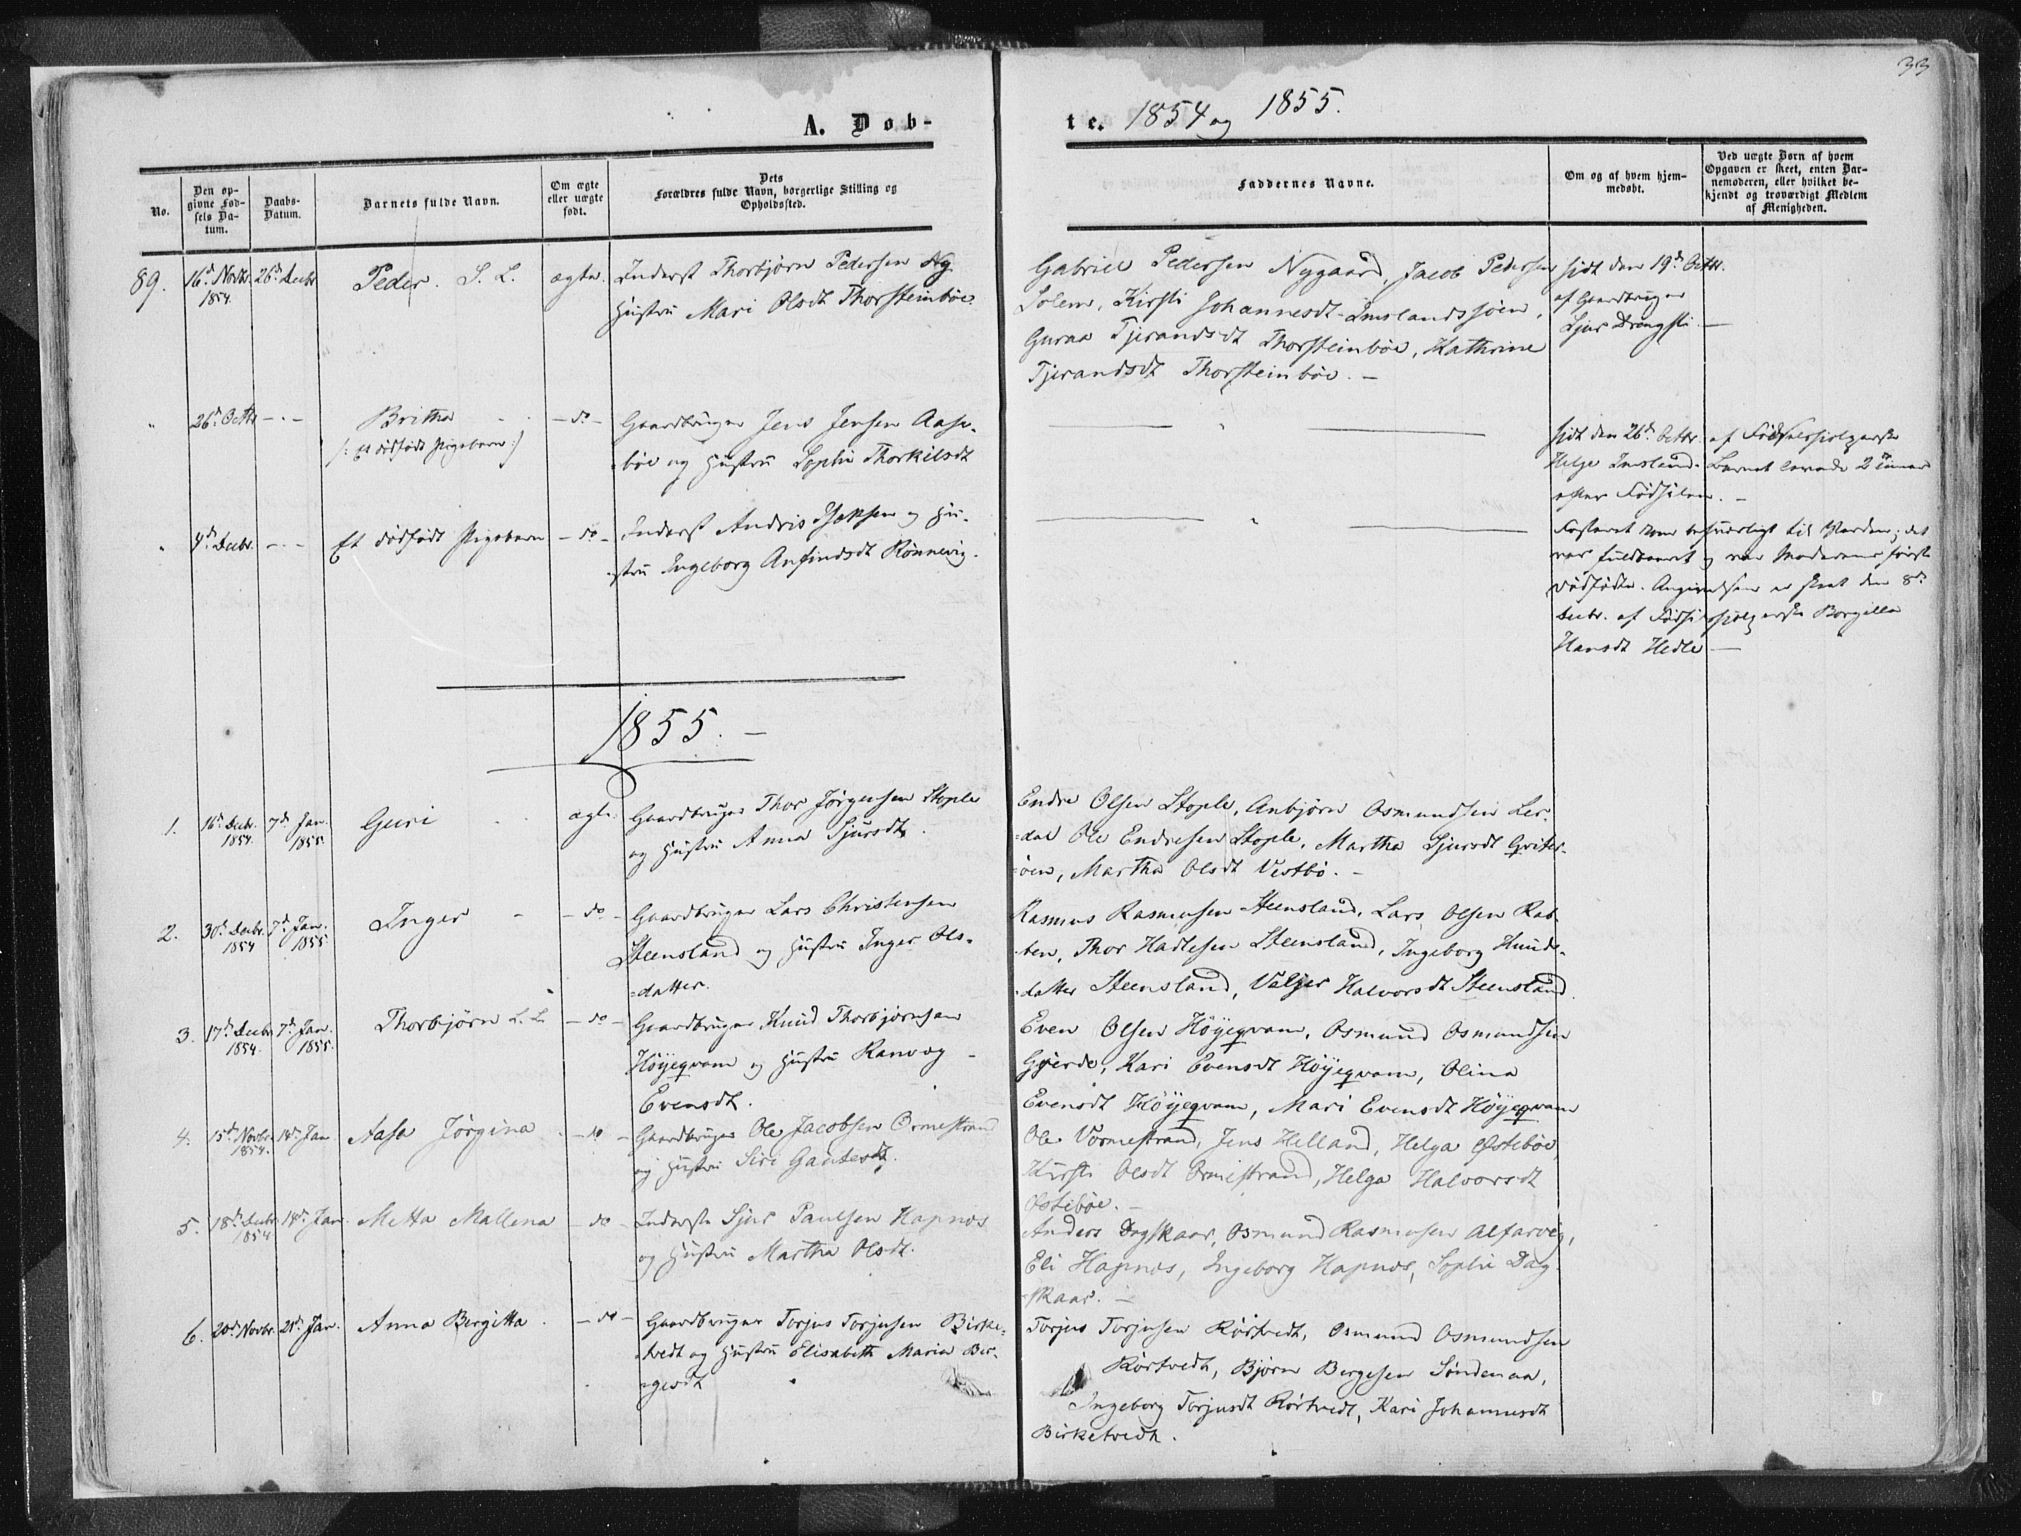 33
A. Døb-
te. 1854 og 1855.
No.
Den opgivne Fødsels Datum.
Daabs-Datum.
Barnets fulde Navn.
Om ægte eller uægte født.
Dets Forældres fulde Navn, borgerlige Stilling og Opholdssted.
Faddernes Navne.
Om og af hvem hjemmedøbt.
Ved uægte Børn af hvem Opgaven er skeet, enten Barnemoderen, eller hvilket bekjendt og troværdigt Medlem af Menigheden.
89. 16d Novbr 1854. 26d Decbr Peder. S. L. ægte.
Inderst Thorbjørn Pedersen og
Hustru Mari Olsdt Thorsteinbøe
Gabriel Pedersen Nygaard, Jacob Pedersen
Solem, Kirsti Johannesdt Imslandssjøen,
Guraa Tjerandsdt Thorsteinbøe, Kathrine
Tjerandsdt Thorsteinbøe. —
hjdt den 19d Octbr.
af Gaardbruger
Sjur Drengsti. —
" 26d Octbr — . — Britha — do —
/: Et dødfødt Pigebarn :/
Gaardbruger Jens Jensen Aase-
-bøe og Hustru Sophie Thorkilsdt
— " —
hjdt den 26d Octbr. af Fødselshjelperske
Helge Imsland. Barnet levede 2 Timer
efter Fødselen. —
" 4d Decbr. — . — Et dødfødt Pigebarn — do —
Inderst Andris Isaksen og Hu-
-stru Ingeborg Anfindsdt Rønnevig.
— " —
Fosteret kom besværligt til Verden; det
var fuldbaaret og var Moderens første
dødfødte. Angivelsen er skeet den 8d
Decbr. af Fødselshjelperske Borgilla
Hansdt Hedle —
1855. —
1. 16d Decbr. 1854. 7d Jan. 1855. Guri ægte.
Gaardbruger Thor Jørgensen Stople
og Hustru Anna Sjursdt.
Endre Olsen Stople, Anbjørn Osmundsen Ler-
-dal Ole Endresen Stople, Martha Sjursdt Qviter-
-øen, Martha Olsdt Vestbø. —
2. 30d Decbr. 1854 7d Jan. 1855 Inger — do —
Gaardbruger Lars Christensen
Steensland og Hustru Inger Ols-
-datter.
Rasmus Rasmusen Steensland, Lars Olsen Rab-
-ben, Thor Hadlesen Steensland, Ingeborg Knuds-
-datter Steensland, Valgjer Halvorsdt Steensland.
3. 17d Decbr 1854. 7d Jan. 1855. Thorbjørn L. L. — do —
Gaardbruger Knud Thorbjørnsen
Høyeqvam og Hustru Ranvog —
Evensdt.
Even Olsen Høyeqvam, Osmund Osmundsen
Gjerde, Kari Evensdt Høyeqvam, Olina
Evensdt Høyeqvam, Mari Evensdt Høyeqvam
4. 15d Novbr 1854. 14d Jan Aasa Jørgina — do —
Gaardbruger Ole Jacobsen Ormestrand
og Hustru Siri Gautesdt.
Ole Vormestrand, Jens Helland, Helga Østebøe
Kirsti Olsdt Ormestrand, Helga Halvorsdt
Østebøe. —
5. 18d Decbr 1854 14d Jan. Metta Mallena — do —
Inderste Sjur Paulsen Hapnes
og Hustru Martha Olsdt.
Anders Dagskaar, Osmund Rasmusen Alfarvig,
Eli Hapnes, Ingeborg Hapnes, Sophie Dag-
-skaar. —
6. 20d Novbr. 21d Jan. Anna Bergitta — do —
Gaardbruger Torjus Torjusen Birke-
-tvedt og Hustru Elisabeth Maria Ber-
-gesdt
Torjus Torjusen Rørtvedt, Osmund Osmundsen
Rørtvedt, Bjørn Bergesen Søndenaa,
Ingeborg Torjusdt Rørtvedt, Kari Johannesdt
Birketvedt.